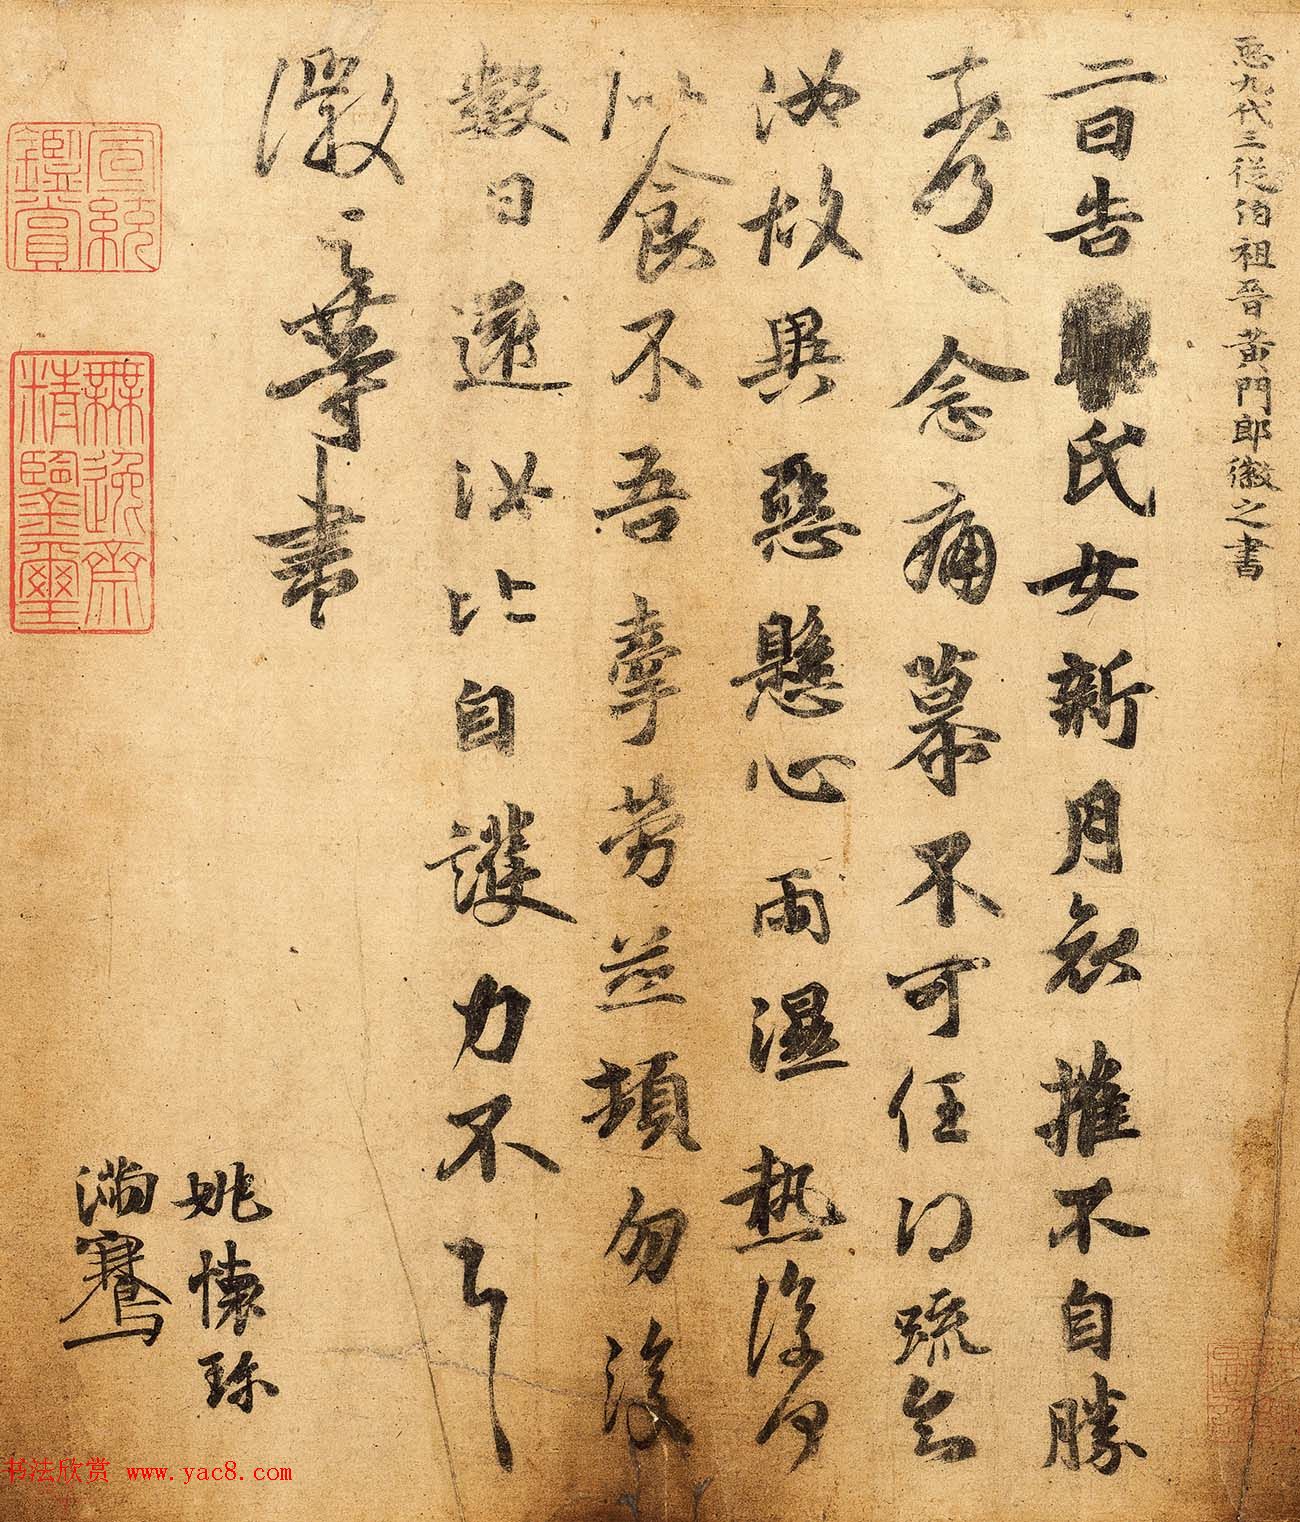 臣九代三從伯祖晉黃門郎徽之書
二日告□氏女新月哀摧不自勝
奈何奈何念痛慕不可任得疏知
汝故異惡懸心雨濕熱復何
似食不吾牽勞並頓勿復
數日還汝比自護力不具
徽之等書
姚懷珍
滿騫
宣統鑑賞
無逸齋精鑒璽
书法欣赏 www.yac8.com